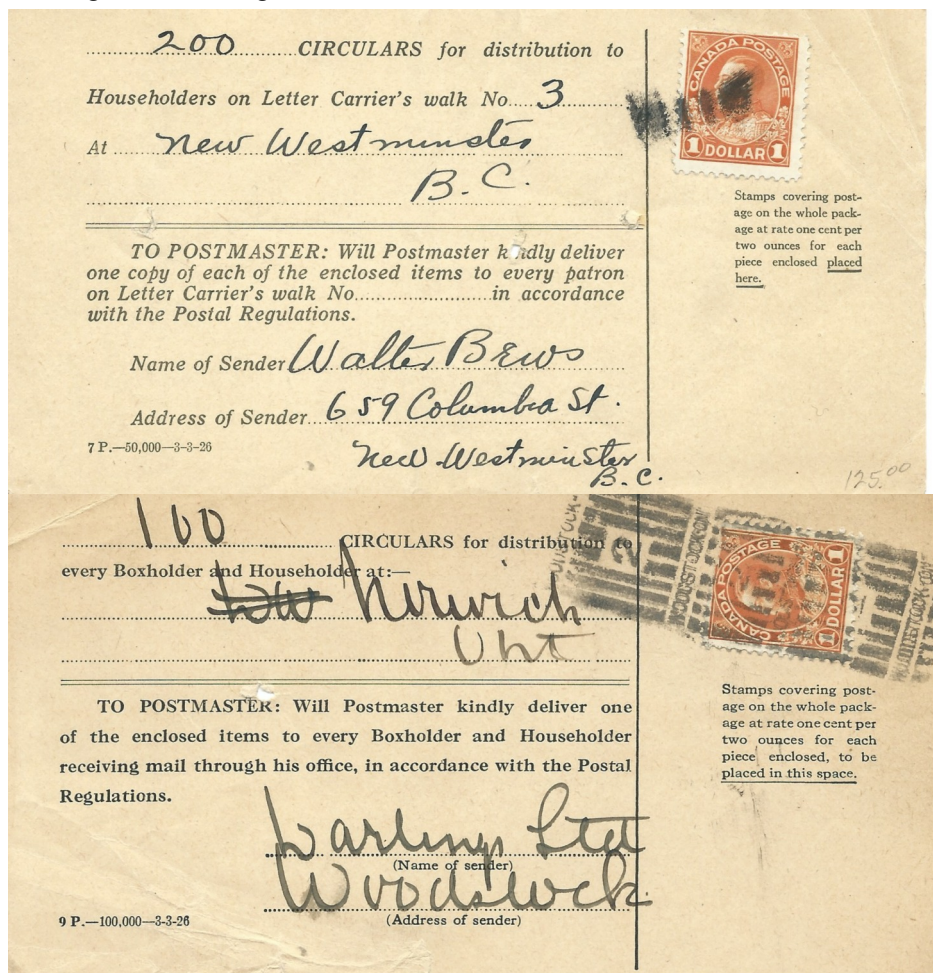 200 CIRCULARS for distribution to
Householders on Letter Carrier's walk No. 3
At New Westminster
B.C.
TO POSTMASTER: Will Postmaster kindly deliver
one copy of each of the enclosed items to every patron
on Letter Carrier's walk No. in accordance
with the Postal Regulations.
Name of Sender Walter Bews
Address of Sender 659 Columbia St.
7 P.—50,000—3-3-26
New Westminster
B.C.
CANADA POSTAGE
1 DOLLAR 1
Stamps covering post-
age on the whole pack-
age at rate one cent per
two ounces for each
piece enclosed placed
here.
125.00
100 CIRCULARS for distribution to
every Boxholder and Householder at:—
Norwich
Ont
TO POSTMASTER: Will Postmaster kindly deliver one
of the enclosed items to every Boxholder and Householder
receiving mail through his office, in accordance with the Postal
Regulations.
Darlings Ltd
(Name of sender)
Woodstock
9 P.—100,000—3-3-26
(Address of sender)
WOODSTOCK-ONT
2
CANADA POSTAGE
1 DOLLAR 1
Stamps covering post-
age on the whole pack-
age at rate one cent per
two ounces for each
piece enclosed, to be
placed in this space.